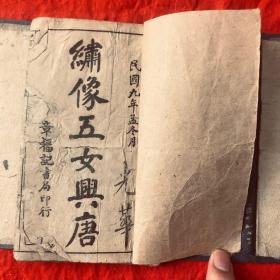 民國九年孟冬月
繡像五女興唐
章福記書局印行
光華